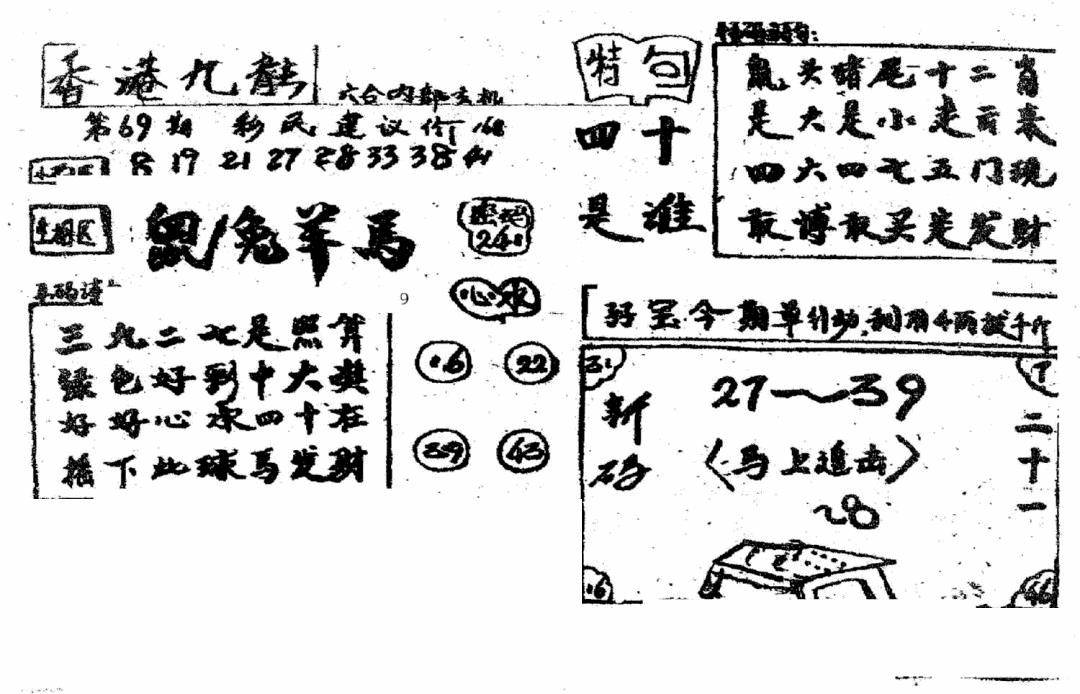 香港九龍
六合内部玄机
第69期 彩民建议价
8 19 21 27 28 33 38 41
鼠兔羊馬
密码
24:
9
心水
三九二七是照算
绿色好到中大奖
好好心承四十在
摇下此球馬发財
16 22
39 43
特句
四十
是谁
鼠头猪尾十二肖
是大是小走前来
四六四七五门現
敢博敢买定发財
今期单行动,利用4两拨千斤
31
7
新码
27～39
〈马上追击〉
28
二十一
16
46